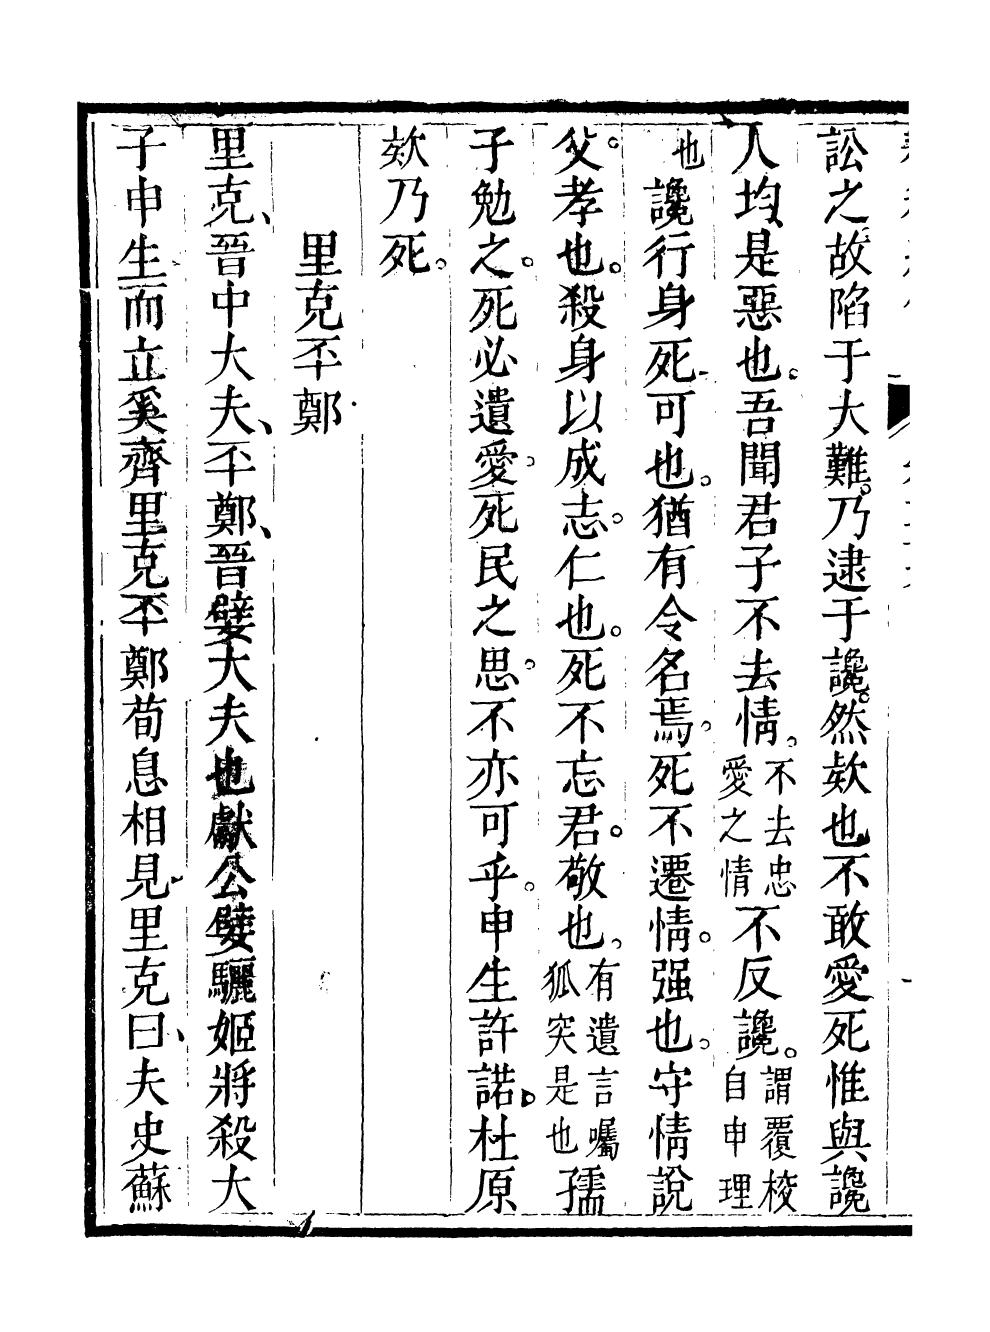 訟之故陷于大難乃逮于讒然欵也不敢愛死惟與讒
人均是惡也吾聞君子不去情不去忠愛之情不反讒謂覆校自申理
也讒行身死可也猶有令名焉死不遷情强也守情說
父孝也殺身以成志仁也死不忘君敬也有遺言囑狐突是也孺
子勉之死必遺愛死民之思不亦可乎申生許諾杜原
欵乃死
里克㔻鄭
里克晉中大夫㔻鄭晉嬖大夫也獻公嬖驪姬將殺大
子申生而立奚齊里克㔻鄭荀息相見里克曰夫史蘇